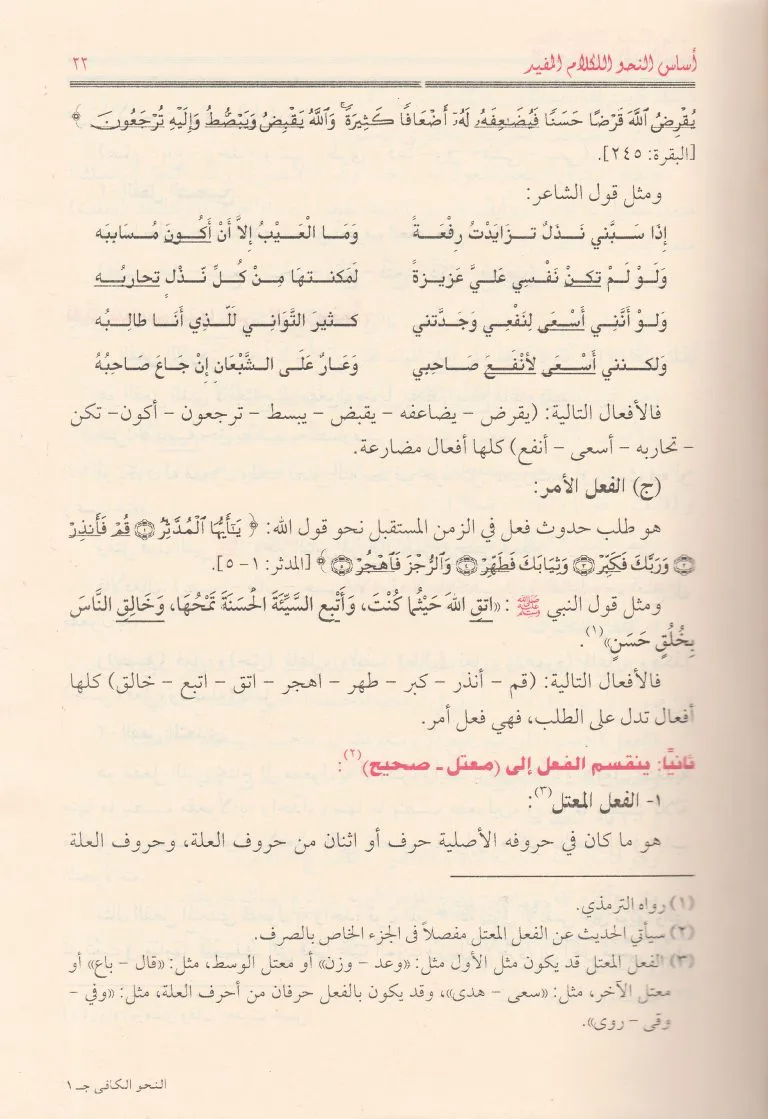 أساس النحو اللكلام المفيد ٣٣
يُقْرِضُ ٱللَّهَ قَرْضًا حَسَنًا فَيُضَٰعِفَهُۥ لَهُۥٓ أَضْعَافًا كَثِيرَةً ۚ وَٱللَّهُ يَقْبِضُ وَيَبْصُۜطُ وَإِلَيْهِ تُرْجَعُونَ ﴾
[البقرة: ٢٤٥].
ومثل قول الشاعر:
إِذَا سَبَّني نَذْلٌ تزَايَدْتُ رِفْعَةً وَمَا الْعَيْبُ إلاَّ أَنْ أَكُونَ مُسَابِبَه
وَلَوْ لَمْ تكِنْ نَفْسِي عَلَيَّ عَزِيزةً لَمَكنتهَا مِنْ كُلِّ نَّذْلٍ تحاربُه
وَلَوْ أَنَّنِي أَسْعَى لِنَفْعِي وَجَدَّتني كثيرَ التَّوَانِي لَلَّذِي أَنَا طالبُه
ولكننِي أَسْعَى لأنْفَعَ صَاحبِي وَعَارٌ عَلَى الشَّبْعَانِ إِنْ جَاعَ صَاحِبُهُ
فالأفعال التالية: (يقرض - يضاعفه - يقبض - يبسط - ترجعون - أكون- تكن
- تحاربه - أسعى - أنفع) كلها أفعال مضارعة.
(ج) الفعل الأمر:
هو طلب حدوث فعل في الزمن المستقبل نحو قول الله: ﴿ يَٰٓأَيُّهَا ٱلْمُدَّثِّرُ ۝١ قُمْ فَأَنذِرْ
۝٢ وَرَبَّكَ فَكَبِّرْ ۝٣ وَثِيَابَكَ فَطَهِّرْ ۝٤ وَٱلرُّجْزَ فَٱهْجُرْ ۝٥ ﴾ [المدثر: ١- ٥].
ومثل قول النبي ﷺ : «اتقِ اللهَ حَيْثُما كُنْتَ، وَأَتْبِعِ السَّيِّئَةَ الحْسَنَةَ تَمْحُهَا، وَخَالِقِ النَّاسَ
بِخُلُقٍ حَسَنٍ»(١).
فالأفعال التالية: (قم - أنذر - كبر - طهر - اهجر - اتق - اتبع - خالق) كلها
أفعال تدل على الطلب، فهي فعل أمر.
ثانيًا: ينقسم الفعل إلى (معتل ـ صحيح)(٢):
١- الفعل المعتل(٣):
هو ما كان في حروفه الأصلية حرف أو اثنان من حروف العلة، وحروف العلة
(١) رواه الترمذي.
(٢) سيأتي الحديث عن الفعل المعتل مفصلاً فى الجزء الخاص بالصرف.
(٣) الفعل المعتل قد يكون مثل الأول مثل: «وعد - وزن» أو معتل الوسط، مثل: «قال - باع» أو
معتل الآخر، مثل: «سعى - هدى»، وقد يكون بالفعل حرفان من أحرف العلة، مثل: «وفي -
وقى - روى».
النحو الكافى جـ ١